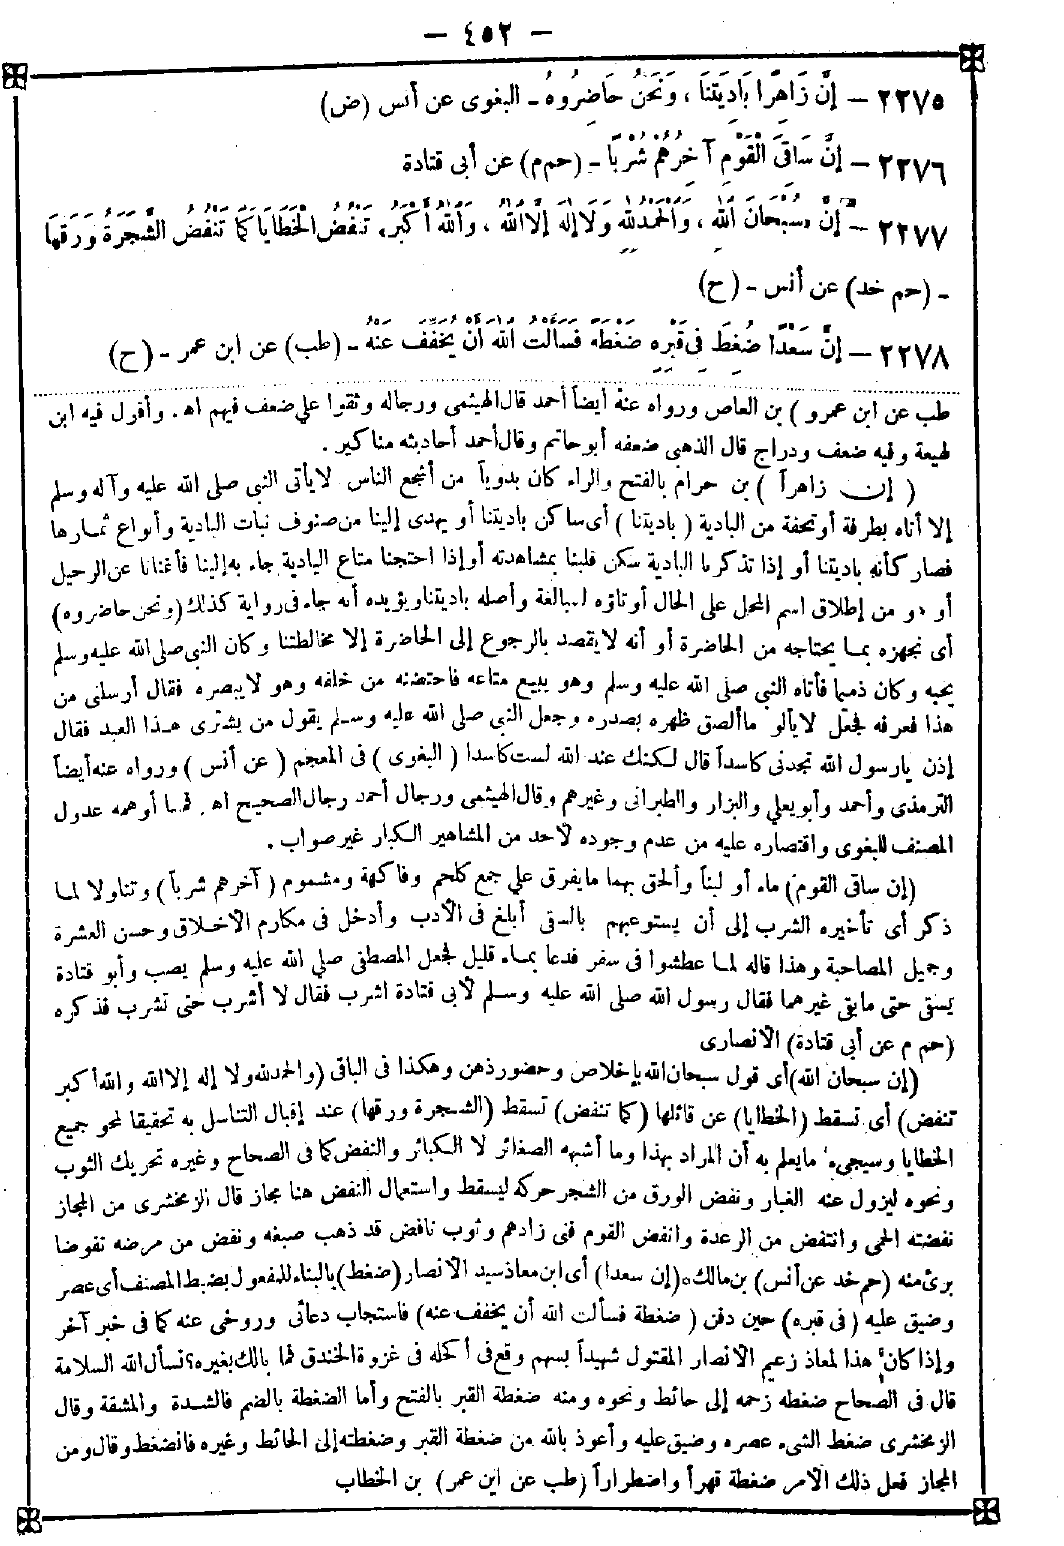 — ٤٥٢ —
٢٢٧٥ — إِنَّ زَاهِرًا بَادِيَتُنَا ، وَنَحْنُ حَاضِرُوهُ ـ البغوى عن أنس (ض)
٢٢٧٦ — إِنَّ سَاقِىَ الْقَوْمِ آخِرُهُمْ شُرْبًا ـ (حم م) عن أبى قتادة
٢٢٧٧ — إِنَّ «سُبْحَانَ اللهِ ، وَالْحَمْدُ لِلهِ وَلَا إِلٰهَ إِلَّا اللهُ ، وَاللهُ أَكْبَرُ» تَنْفُضُ الْخَطَايَا كَمَا تَنْفُضُ الشَّجَرَةُ وَرَقَهَا
ـ (حم خد) عن أنس ـ (ح)
٢٢٧٨ — إِنَّ سَعْدًا ضُغِطَ فِى قَبْرِهِ ضَغْطَةً فَسَأَلْتُ اللهَ أَنْ يُخَفِّفَ عَنْهُ ـ (طب) عن ابن عمر ـ (ح)
طب عن ابن عمرو ) بن العاص ورواه عنه أيضاً أحمد قال الهيثمى ورجاله وثقوا على ضعف فيهم اه . وأقول فيه ابن
لهيعة وفيه ضعف ودراج قال الذهبى ضعفه أبو حاتم وقال أحمد أحاديثه مناكير .
( إن زاهراً ) بن حرام بالفتح والراء كان بدوياً من أشجع الناس لا يأتى النبى صلى الله عليه وآله وسلم
إلا أتاه بطرفة أو تحفة من البادية ( باديتنا ) أى ساكن باديتنا أو يهدى إلينا من صنوف نبات البادية وأنواع ثمارها
فصار كأنه باديتنا أو إذا تذكرنا البادية سكن قلبنا بمشاهدته أو إذا احتجنا متاع البادية جاء به إلينا فأغنانا عن الرحيل
أو هو من إطلاق اسم المحل على الحال أو تاؤه للمبالغة وأصله بادينا ويؤيده أنه جاء فى رواية كذلك (ونحن حاضروه)
أى نجهزه بما يحتاجه من الحاضرة أو أنه لا يقصد بالرجوع إلى الحاضرة إلا مخالطتنا وكان النبى صلى الله عليه وسلم
يحبه وكان دميما فأتاه النبى صلى الله عليه وسلم وهو يبيع متاعه فاحتضنه من خلفه وهو لا يبصره فقال أرسلنى من
هذا فعرفه فجعل لا يألو ما ألصق ظهره بصدره وجعل النبى صلى الله عليه وسلم يقول من يشترى هذا العبد فقال
إذن يارسول الله تجدنى كاسداً قال لكنك عند الله لست كاسدا ( البغوى ) فى المعجم ( عن أنس ) ورواه عنه أيضاً
الترمذى وأحمد وأبو يعلى والبزار والطبرانى وغيرهم وقال الهيثمى ورجال أحمد رجال الصحيح اه . فما أوهمه عدول
المصنف للبغوى واقتصاره عليه من عدم وجوده لأحد من المشاهير الكبار غير صواب .
(إن ساقى القوم) ماء أو لبناً وألحق بهما ما يفرق على جمع كلحم وفاكهة ومشموم ( آخرهم شرباً ) وتناولا لما
ذكر أى تأخيره الشرب إلى أن يستوعبهم بالسقى أبلغ فى الأدب وأدخل فى مكارم الأخلاق وحسن العشرة
وجميل المصاحبة وهذا قاله لما عطشوا فى سفر فدعا بماء قليل فجعل المصطفى صلى الله عليه وسلم يصب وأبو قتادة
يسقى حتى ما بقى غيرهما فقال رسول الله صلى الله عليه وسلم لأبى قتادة اشرب فقال لا أشرب حتى تشرب فذكره
(حم م عن أبى قتادة) الأنصارى
(إن سبحان الله) أى قول سبحان الله بإخلاص وحضور ذهن وهكذا فى الباقى (والحمد لله ولا إله إلا الله والله أكبر
تنفض) أى تسقط (الخطايا) عن قائلها (كما تنفض) تسقط (الشجرة ورقها) عند إقبال التناسل به تحقيقا لمحو جميع
الخطايا وسيجىء ما يعلم به أن المراد بهذا وما أشبهه الصغائر لا الكبائر والنفض كما فى الصحاح وغيره تحريك الثوب
ونحوه ليزول عنه الغبار ونفض الورق من الشجر حركه ليسقط واستعمال النفض هنا مجاز قال الزمخشرى من المجاز
نفضته الحمى وانتفض من الرعدة وانفض القوم فنى زادهم وثوب نافض قد ذهب صبغه ونفض من مرضه نفوضا
برئ منه (حم خد عن أنس) بن مالك ه (إن سعدا) أى ابن معاذ سيد الأنصار (ضغط) بالبناء للمفعول بضبط المصنف أى عصر
وضيق عليه (فى قبره) حين دفن ( ضغطة فسألت الله أن يخفف عنه) فاستجاب دعائى وروخى عنه كما فى خبر آخر
وإذا كان هذا لمعاذ زعيم الأنصار المقتول شهيداً بسهم وقع فى أكحله فى غزوة الخندق فما بالك بغيره؟ نسأل الله السلامة
قال فى الصحاح ضغطه زحمه إلى حائط ونحوه ومنه ضغطة القبر بالفتح وأما الضغطة بالضم فالشدة والمشقة وقال
الزمخشرى ضغط الشىء عصره وضيق عليه وأعوذ بالله من ضغطة القبر وضغطته إلى الحائط وغيره فانضغط وقال ومن
المجاز فعل ذلك الأمر ضغطة قهراً واضطراراً (طب عن ابن عمر) بن الخطاب